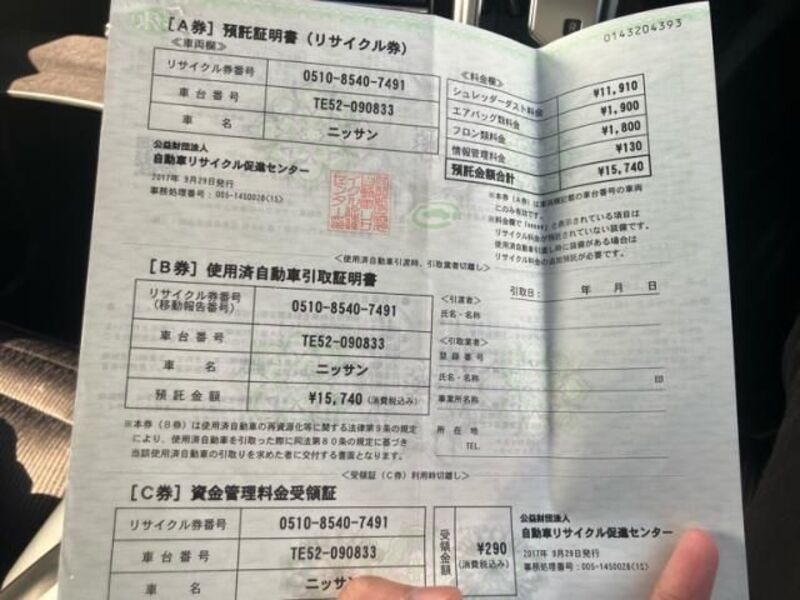 0143204393
[A券] 預託証明書 (リサイクル券)
＜車両欄＞
リサイクル券番号 0510-8540-7491
車台番号 TE52-090833
車名 ニッサン
＜料金欄＞
シュレッダーダスト料金 ¥11,910
エアバッグ類料金 ¥1,900
フロン類料金 ¥1,800
情報管理料金 ¥130
預託金額合計 ¥15,740
公益財団法人
自動車リサイクル促進センター
2017年 9月29日発行
事務処理番号:005-1450028(1S)
※本券（A券）は車両欄記載の車台番号の車両
にのみ有効です。
と表示されている項目は
リサイクル料金が預託されていない装備です。
使用済自動車引渡し時に装備がある場合は
リサイクル料金の追加預託が必要です。
＜使用済自動車引渡時、引取業者切離し＞
[B券] 使用済自動車引取証明書
リサイクル券番号
(移動報告番号) 0510-8540-7491
車台番号 TE52-090833
車名 ニッサン
預託金額 ¥15,740 (消費税込み)
引取日: 年 月 日
＜引渡者＞
氏名・名称
＜引取業者＞
登録番号
氏名・名称 印
事業所名称
所在地
TEL.
※本券（B券）は使用済自動車の再資源化等に関する法律第9条の規定
により、使用済自動車を引取った際に同法第80条の規定に基づき
当該使用済自動車の引取りを求めた者に交付する書面となります。
＜受領証（C券）利用時切離し＞
[C券] 資金管理料金受領証
リサイクル券番号 0510-8540-7491
車台番号 TE52-090833
車名 ニッサン
受領金額 ¥290
(消費税込み)
公益財団法人
自動車リサイクル促進センター
2017年 9月29日発行
事務処理番号:005-1450028(1S)